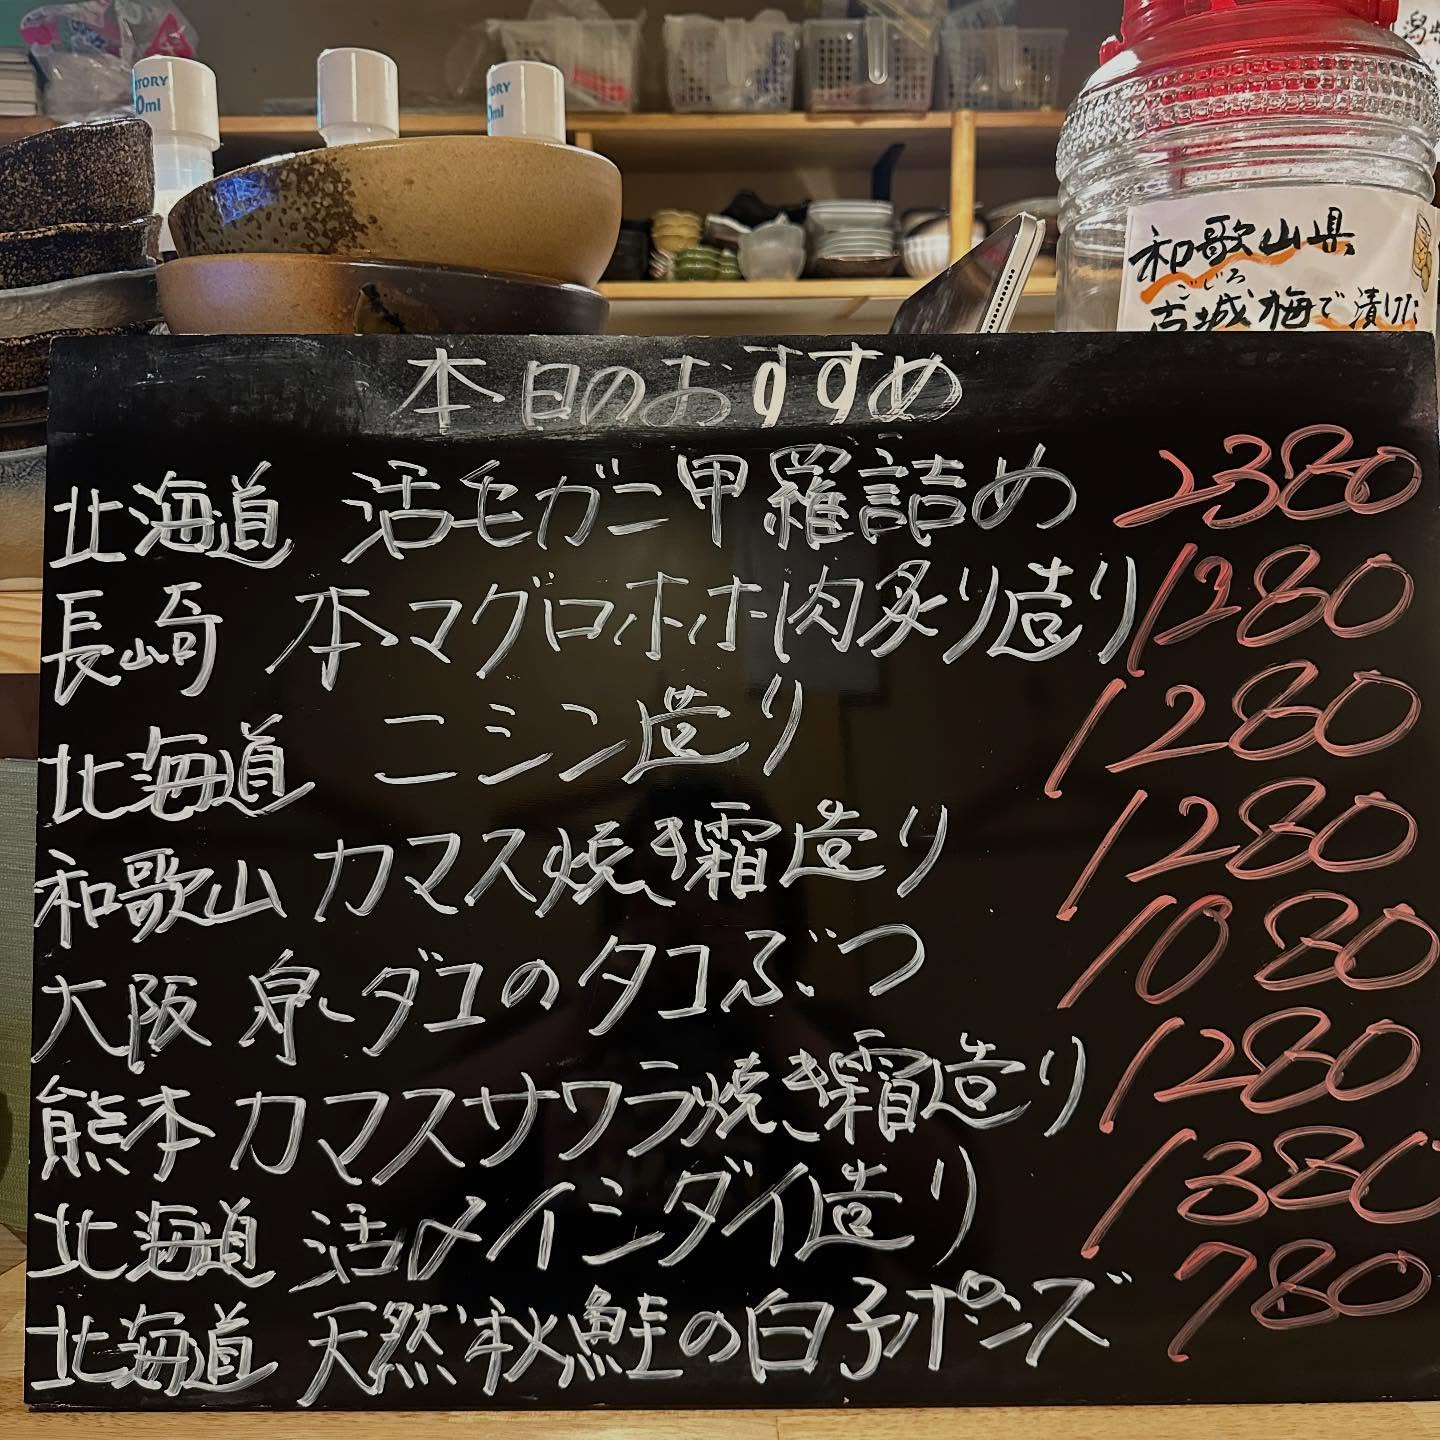 TORY
0ml
TORY
0ml
和歌山県
こじろ
古城梅で漬けた
本日のおすすめ
北海道 活毛ガニ甲羅詰め 2380
長崎 本マグロホホ肉炙り造り 1280
北海道 ニシン造り 1280
和歌山 カマス焼き霜造り 1280
大阪 泉ダコのタコぶつ 1080
熊本 カマスサワラ焼き霜造り 1280
北海道 活〆イシダイ造り 1380
北海道 天然秋鮭の白子ポンズ 780